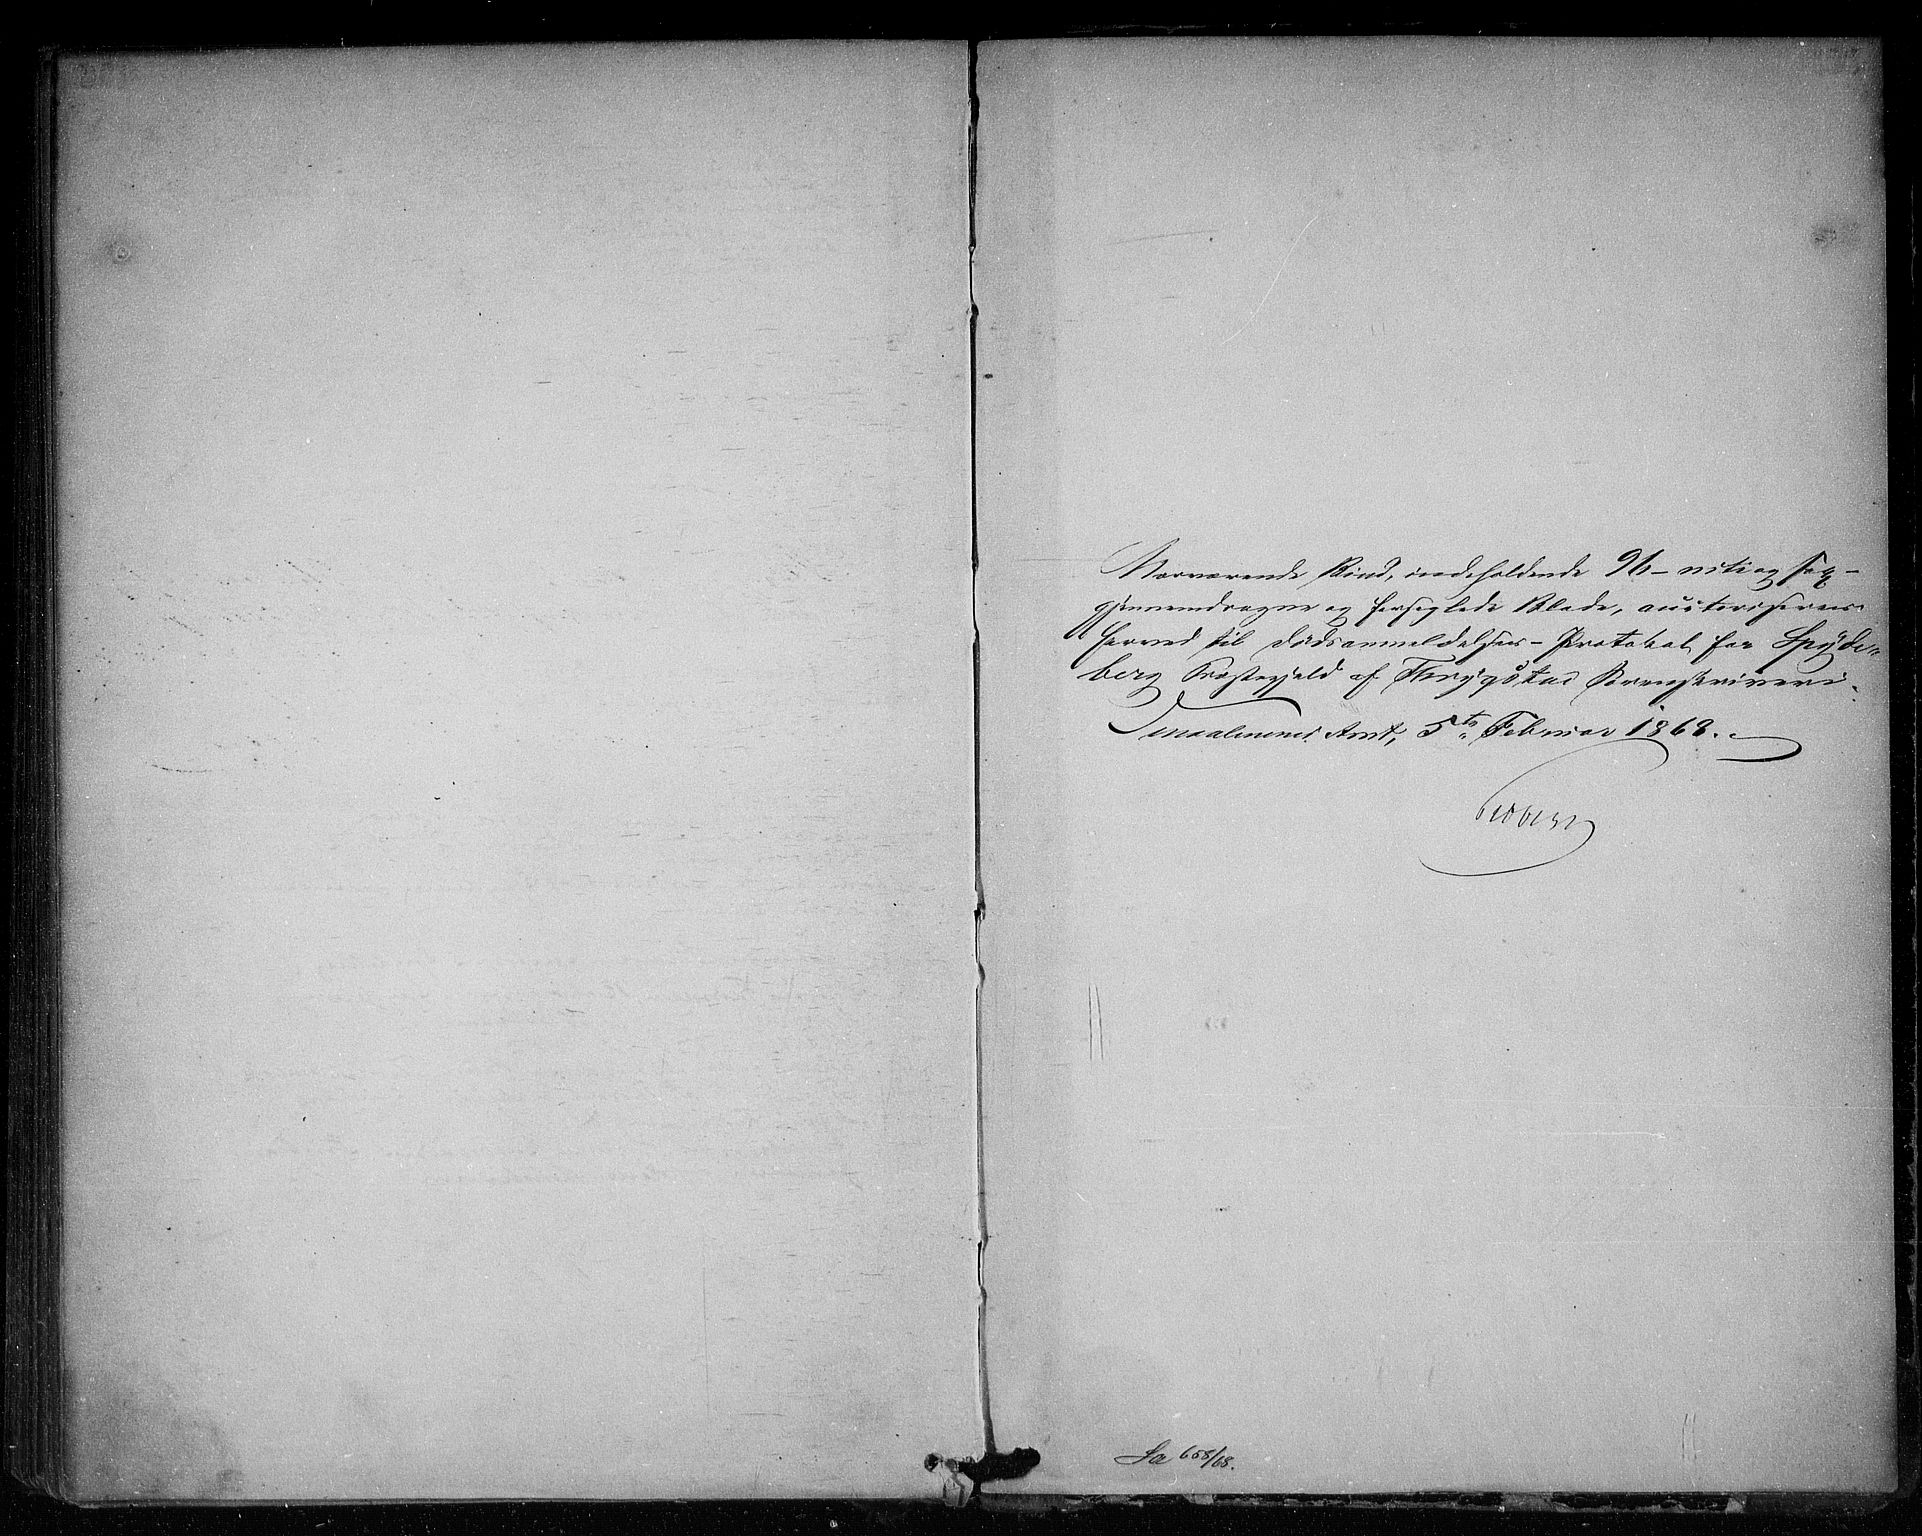 Nærværende Bind, indeholdende 96 – niti og sex –
gjennemdragne og forseglede Blade, autoriseres
herved til Dødsanmeldelses-Protokol for Spyde-
berg Præstegjeld af Thrygstad Sorenskriveri.
Smaalenenes Amt, 5te Februar 1868.
La 658/68.